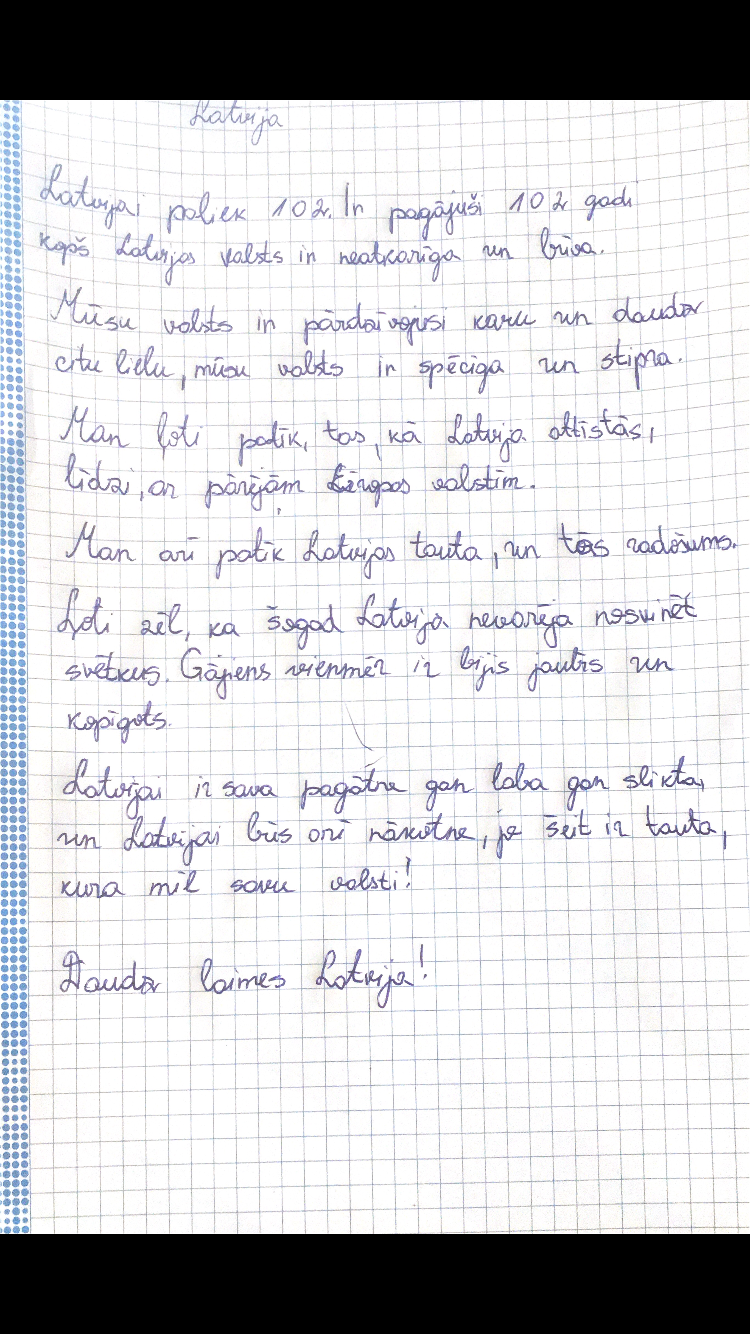 Latvija
Latvijai paliek 102. Ir pagājuši 102 gadi
kopš Latvijas valsts ir neatkarīga un brīva.
Mūsu valsts ir pārdzīvojusi karu un daudz
citu lielu, mūsu valsts ir spēcīga un stipra.
Man ļoti patīk, tas, kā Latvija attīstās,
līdzi, ar pārējām Eiropas valstīm.
Man arī patīk Latvijas tauta, un tās radošums.
Ļoti žēl, ka šogad Latvija nevarēja nosvinēt
svētkus. Gājiens vienmēr ir bijis jautrs un
kopīgots.
Latvijai ir sava pagātne gan laba gan slikta,
un Latvijai būs arī nākotne, ja šeit ir tauta,
kura mīl savu valsti!
Daudz laimes Latvija!